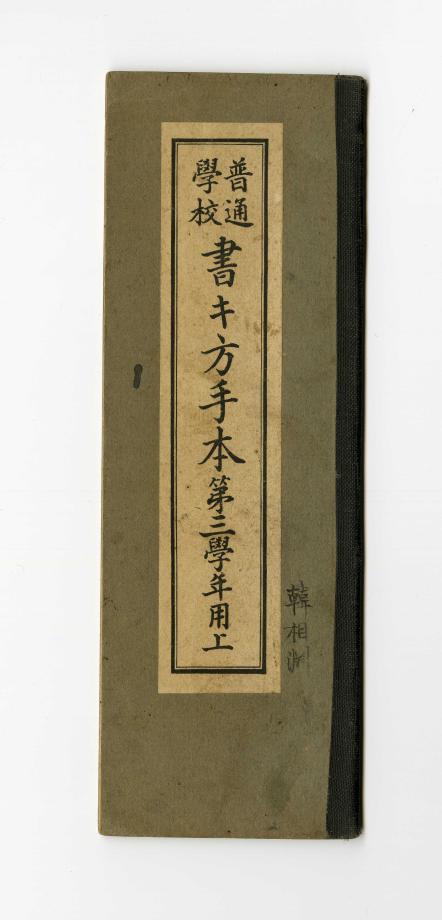 普通
學校
書キ方手本第三學年用上
韓相